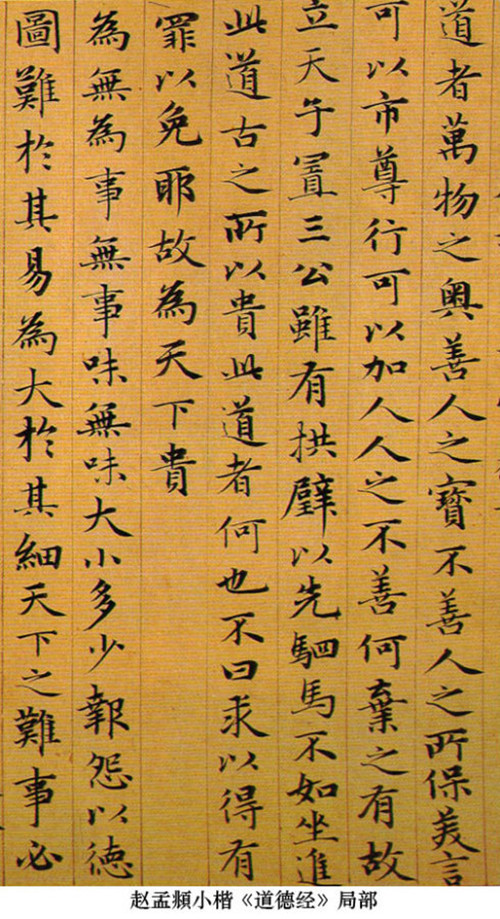 道者萬物之奧善人之寳不善人之所保美言
可以市尊行可以加人人之不善何棄之有故
立天子置三公雖有拱璧以先駟馬不如坐進
此道古之所以貴此道者何也不曰求以得有
罪以免耶故為天下貴
為無為事無事味無味大小多少報怨以德
圖難於其易為大於其細天下之難事必
赵孟頫小楷《道德经》局部